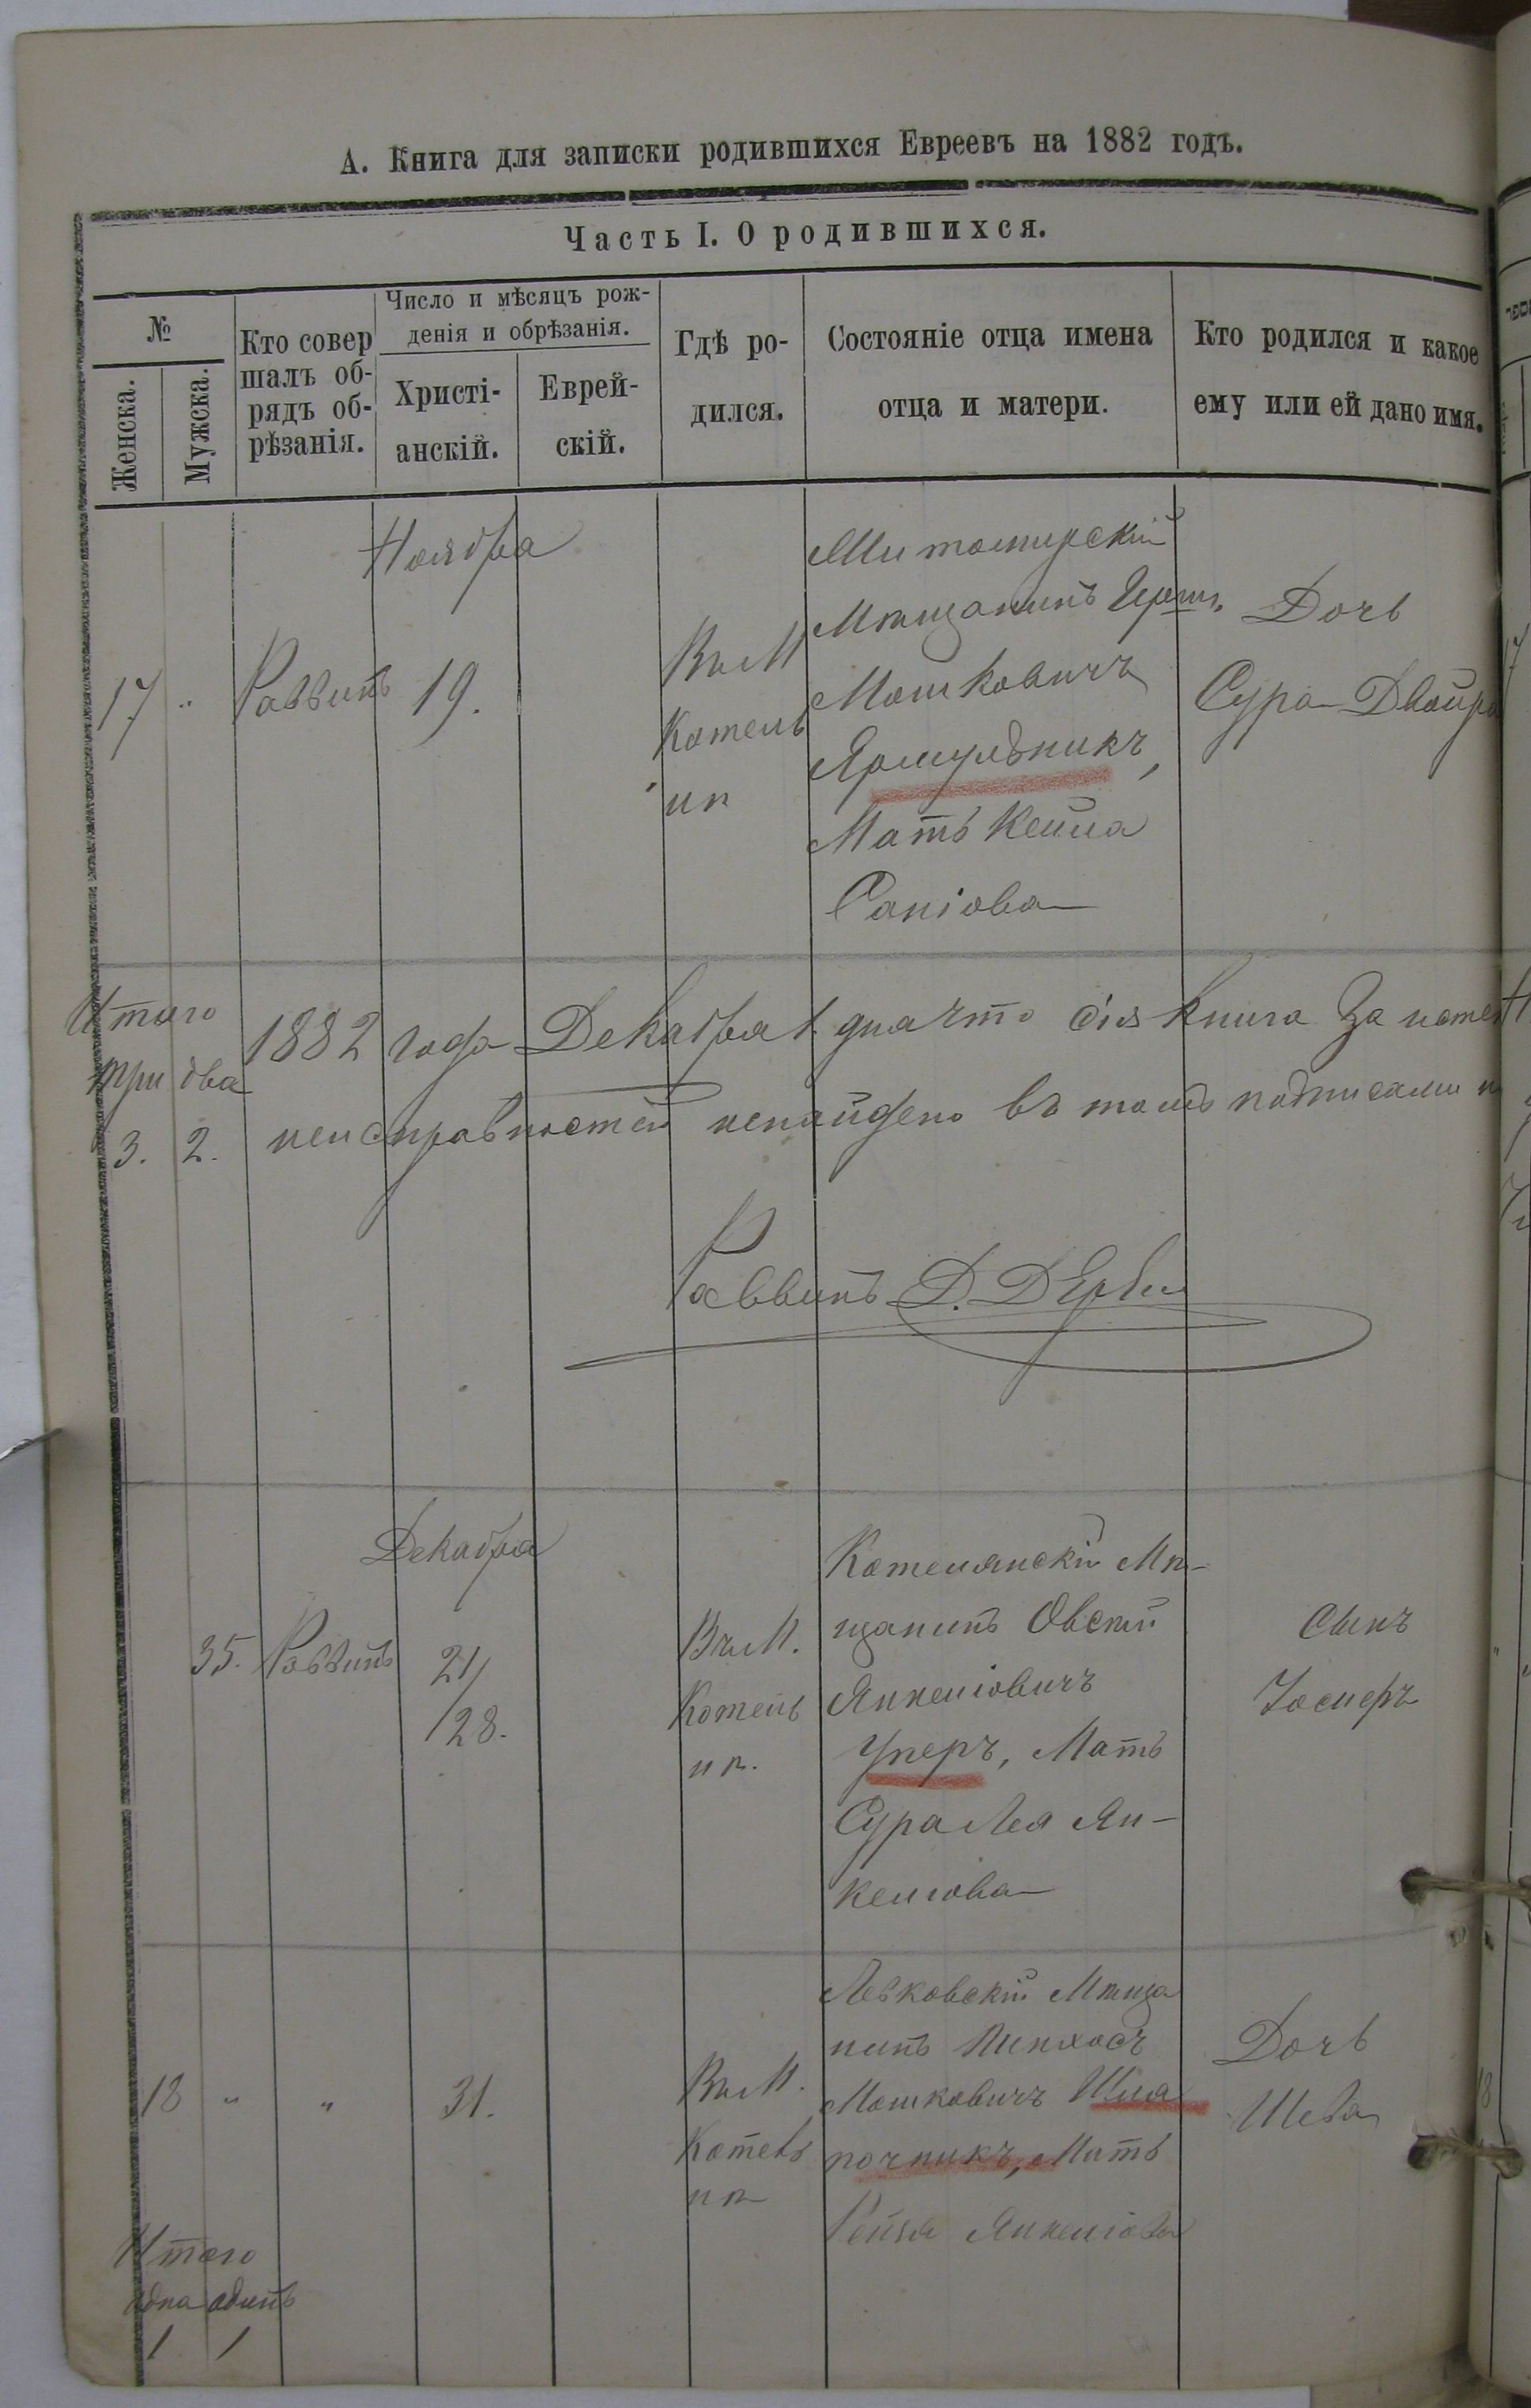 А. Книга для записки родившихся Евреевъ на 1882 годъ.
Часть I. О родившихся.
№
Женска.
Мужска.
Кто совер
шалъ об-
рядъ об-
рѣзанія.
Число и мѣсяцъ рож-
денія и обрѣзанія.
Христі-
анскій.
Еврей-
скій.
Гдѣ ро-
дился.
Состояніе отца имена
отца и матери.
Кто родился и какое
ему или ей дано имя.
Ноября
17 " Раввинъ 19.
Въ М
Котель
нѣ
Житомирскій
Мѣщанинъ Герш.
Мошковичъ
Ярмульникъ,
Мать Кейла
Дочь
Сура Двойра
Итого
три два
3. 2.
1882 года Декабря 1. дня что сія книга За
неисправностей ненайдено въ томъ подписали
Раввинъ Д.
Декабря
35. Раввинъ 21/
/28.
Въ М.
Котель
нѣ.
Котелянскій Мѣ-
щанинъ Овсей
Янкеліовичъ
Мать
Сура Лея Ян-
келіова
Сынъ
Іосифъ
18 " " 31.
Въ М.
Котель
нѣ
Левковскій Мѣща
нинъ Пинхасъ
Мошковичъ Шпа
почникъ, Мать
Рейзя Янкеліова
Дочь
Шева
Итого
одна одинъ
1 1